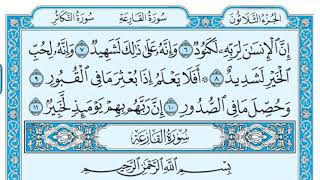 الجزء الثلاثون سورة القارعة سورة التكاثر
إِنَّ الْإِنسَٰنَ لِرَبِّهِۦ لَكَنُودٌ ٦ وَإِنَّهُۥ عَلَىٰ ذَٰلِكَ لَشَهِيدٌ ٧ وَإِنَّهُۥ لِحُبِّ
الْخَيْرِ لَشَدِيدٌ ٨ أَفَلَا يَعْلَمُ إِذَا بُعْثِرَ مَا فِي الْقُبُورِ ٩
وَحُصِّلَ مَا فِي الصُّدُورِ ١٠ إِنَّ رَبَّهُم بِهِمْ يَوْمَئِذٍ لَّخَبِيرٌ ١١
سُورَةُ الْقَارِعَةِ
بِسْمِ اللَّهِ الرَّحْمَٰنِ الرَّحِيمِ